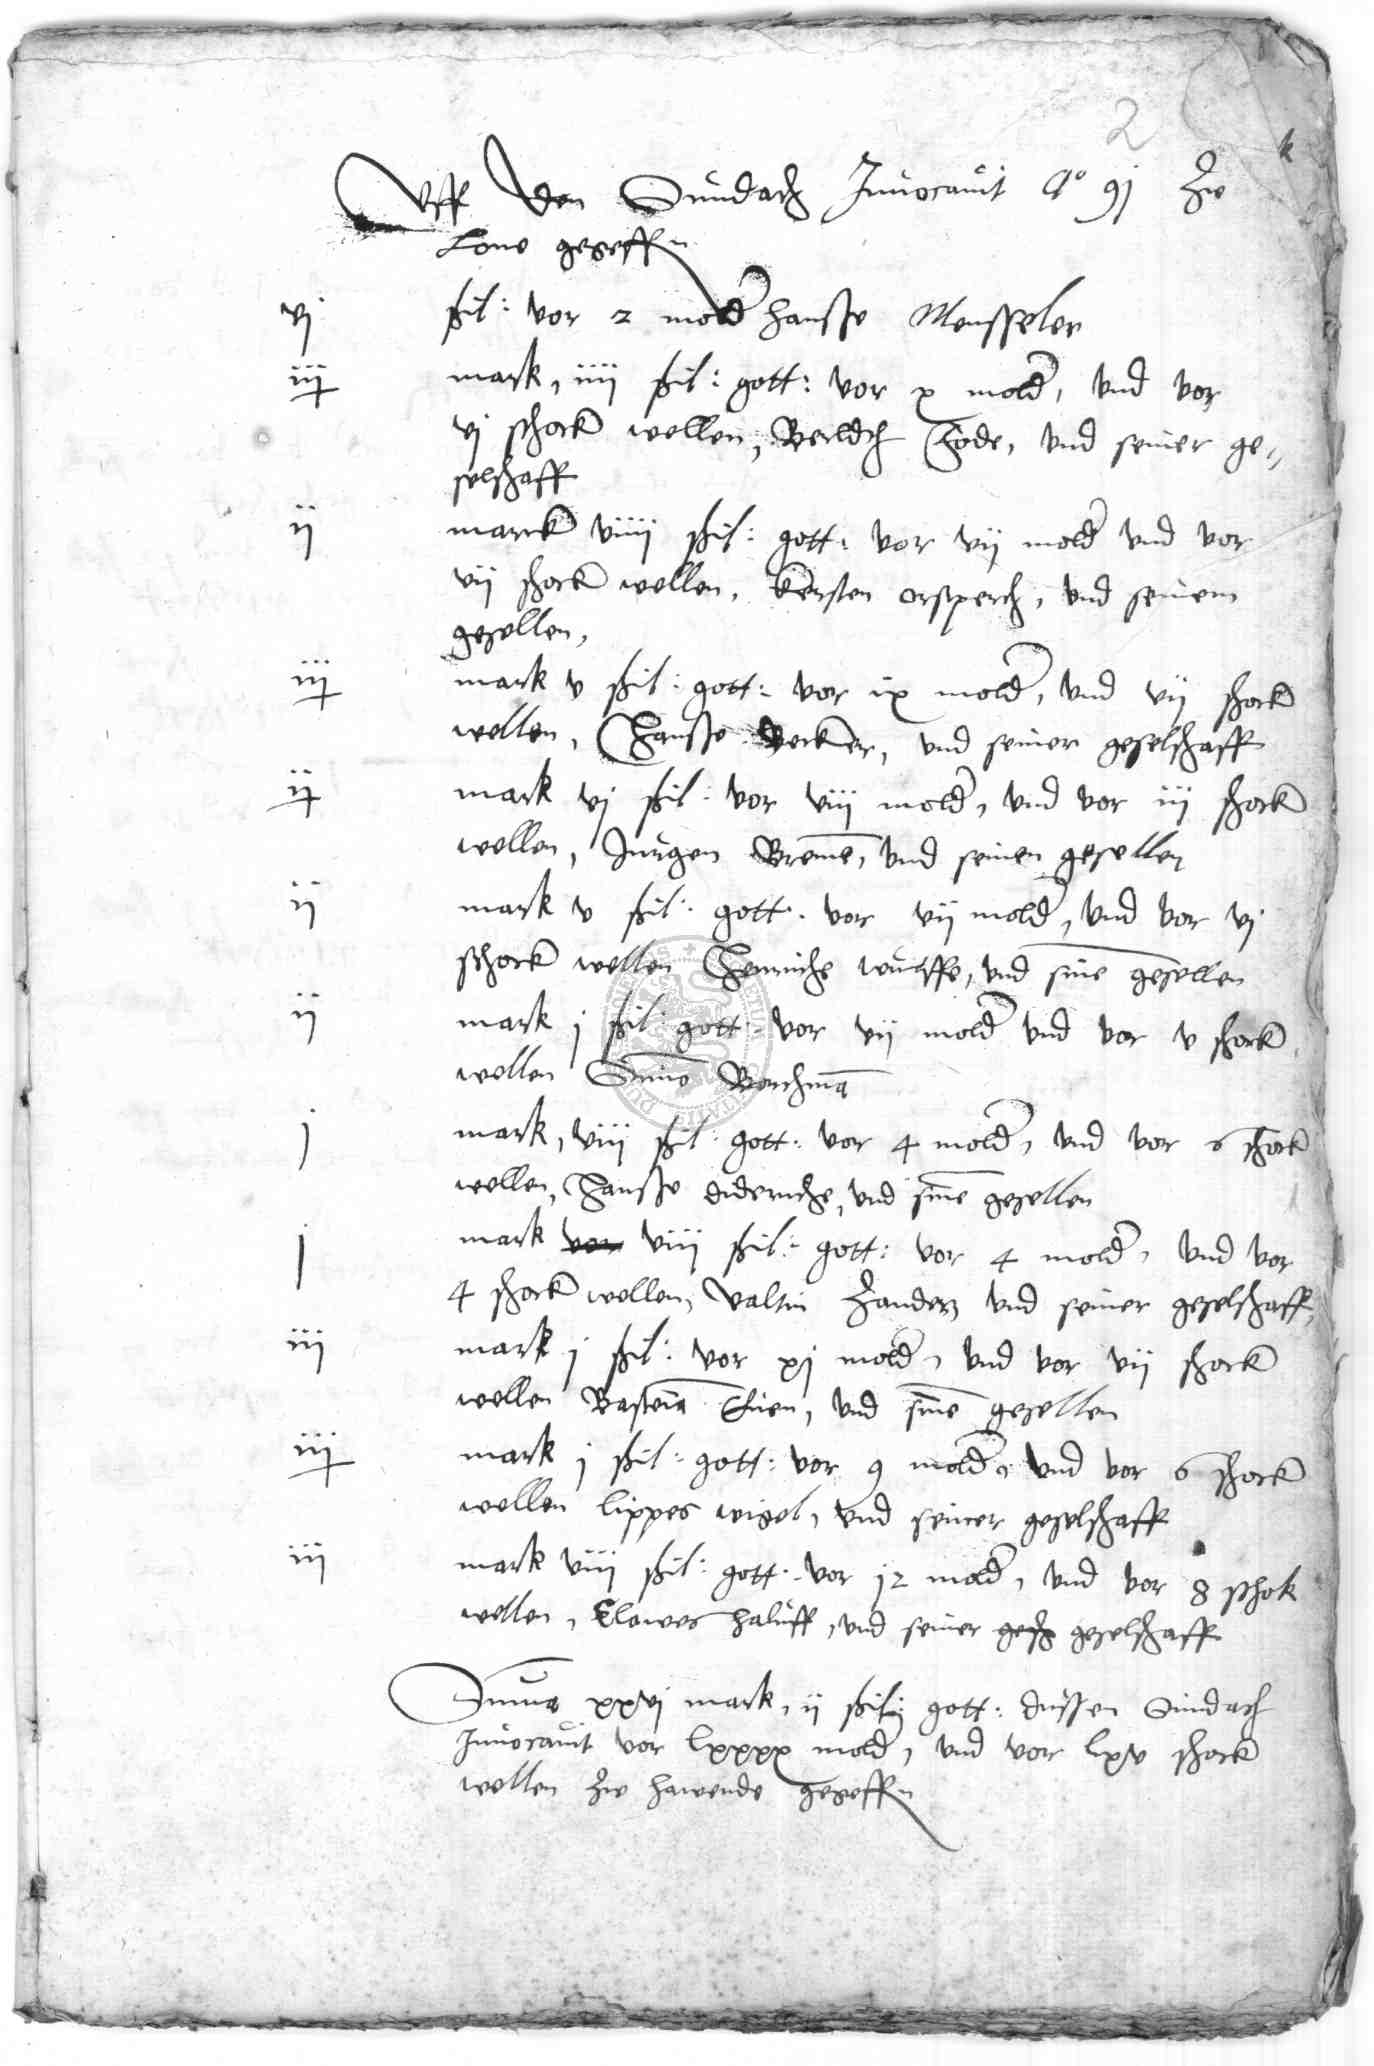 2
k
Uff den Sundach Invocavit Ao 91 zw
Lone geseff
vj ßil: vor 2 mold hansse Mensseler
iij mark, iiij ßil: gott: vor x mold, und vor
vj schock wellen, Berldt Tode, und seiner ge-
selschaff
ij marck viiij ßil: gott: vor vij mold und vor
vij schock wellen, kersten orsperch, und seinem
gesellen,
iij mark v ßil: gott: vor ix mold, und vij schock
wellen, Hansse Becker, und seiner geselschaff
ij mark vj ßil: vor viij mold, und vor iij schock
wellen, Jurgen Breme, und seinen gesellen
ij mark v ßil: gott: vor vij mold, und vor vj
schock wellen Henriche wulffe, und sine gesellen
ij mark j ßil: gott: vor vij mold und vor v schock
wellen Simo Borchma
j mark, viij ßil: gott: vor 4 mold, und vor 6 schock
wellen, Hansse dideriche, und sine gesellen
j mark vor viij ßil: gott: vor 4 mold, und vor
4 schock wellen, valtin Zanderz und seiner geselschaff,
iij mark j ßil: vor xj mold, und vor vij schock
wellen Basteia und sine gesellen
iij mark j ßil: gott: vor 9 mold, und vor 6 schock
wellen lippes wisel, und seiner geselschaff
iij mark viij ßil: gott: vor 12 mold, und vor 8 schok
wellen, Clawes haluff, und seiner gesch geselschaff
Suma xxvj mark, ij ßil: gott: dussen Sundach
Invocavit vor lxxxx mold, und vor lxv schock
wellen zw hawende geseff